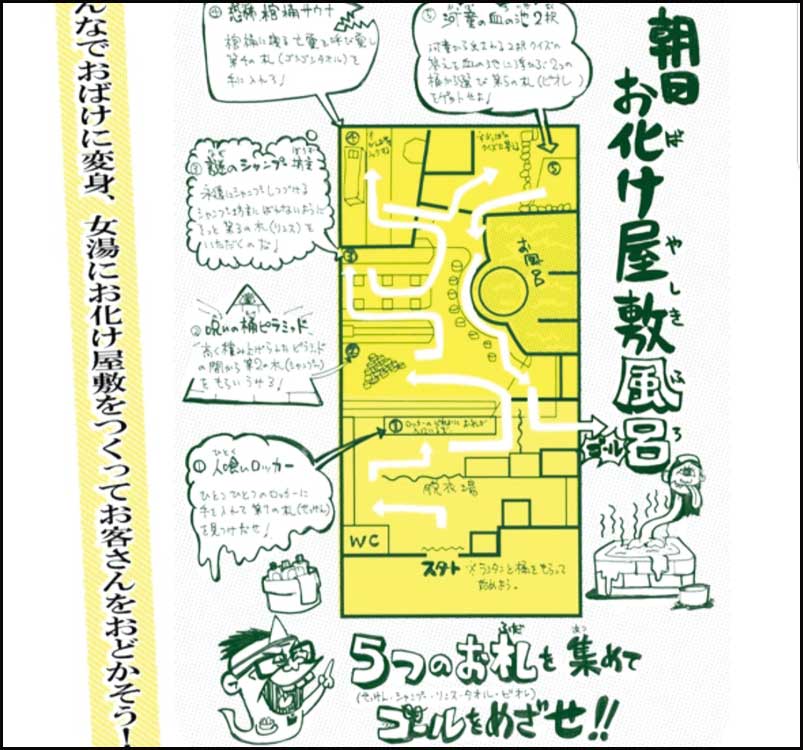 んなでおばけに変身、女湯にお化け屋敷をつくってお客さんをおどかそう！
朝日お化け屋敷風呂
ば やしき ふろ
④ 恐怖棺桶サウナ
棺桶に眠る亡霊を呼び覚し
第4の札(ゴシゴシタオル)を
手に入れろ！
⑤ 河童の血の池2択
河童から出される2択クイズの
答えを血の池に浮かぶ2つの
桶から選び第5の札(ビオレ)
をゲットせよ！
③ 謎のシャンプー坊主
永遠にシャンプーしつづける
シャンプー坊主にばれないように
そっと第3の札(リンス)を
いただくのだ！
② 呪いの桶ピラミッド
高く積み上げられたピラミッド
の間から第2の札(シャンプー)
をもらいうけろ！
① 人喰いロッカー
ひとく
ひとつひとつのロッカーに
手を入れて第1の札(せっけん)
を見つけだせ！
④
⑤
お風呂
③
②
①
ゴール
脱衣場
WC
スタート ※ランタンと桶をもらって
始めよう。
5つのお札を集めて
ふだ あつ
(せっけん・シャンプー・リンス・タオル・ビオレ)
ゴールをめざせ!!